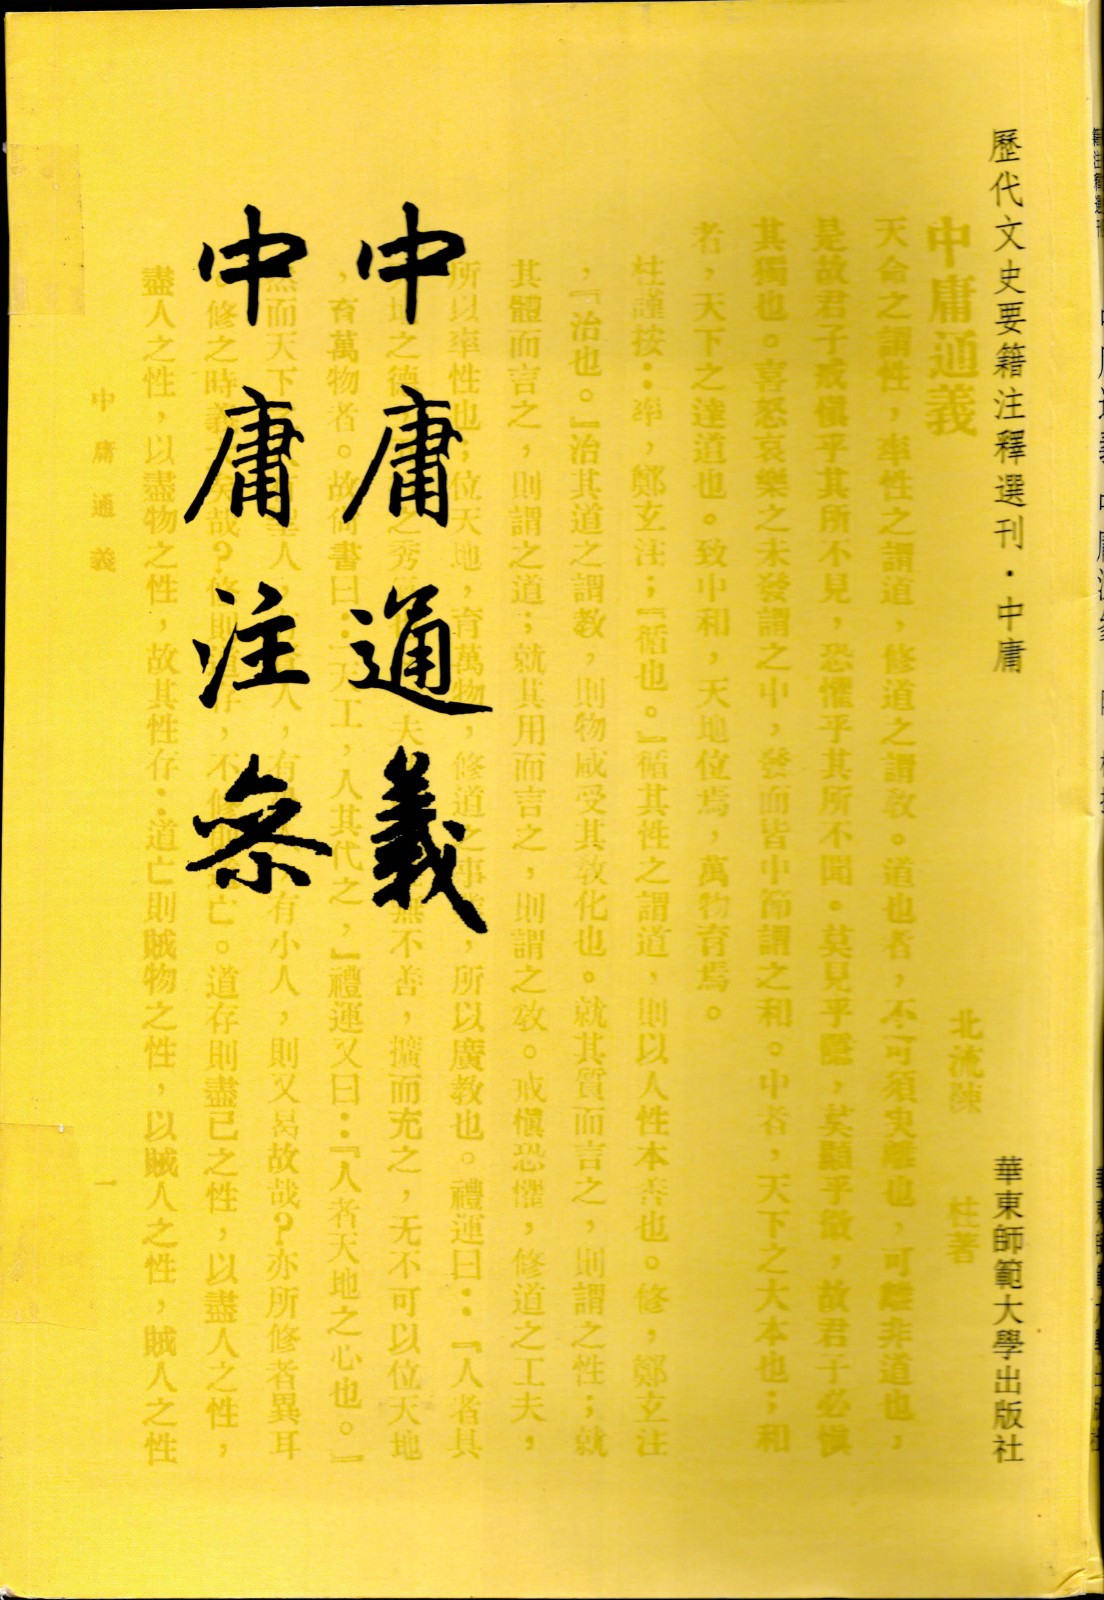 歷代文史要籍注釋選刊·中庸
華東師範大學出版社
中庸通義
中庸注參
中庸通義
北流陳 柱著
天命之謂性，率性之謂道，修道之謂教。道也者，不可須臾離也，可離非道也，
是故君子戒慎乎其所不見，恐懼乎其所不聞。莫見乎隱，莫顯乎微，故君子必慎
其獨也。喜怒哀樂之未發謂之中，發而皆中節謂之和。中者，天下之大本也；和
者，天下之達道也。致中和，天地位焉，萬物育焉。
柱謹按：率，鄭玄注；『循也。』循其性之謂道，則以人性本善也。修，鄭玄注
，『治也。』治其道之謂教，則物咸受其教化也。就其質而言之，則謂之性；就
其體而言之，則謂之道；就其用而言之，則謂之教。戒慎恐懼，修道之工夫，
所以率性也，位天地，育萬物，修道之事，所以廣教也。禮運曰：『人者具
地之德 之秀 夫 無不善，擴而充之，无不可以位天地
，育萬物者。故尚書曰：『天工，人其代之，』禮運又曰：『人者天地之心也。』
然而天下 人， 人，有 有小人，則又曷故哉？亦所修者異耳
修之時義 矣哉？修則道存，不修 亡。道存則盡己之性，以盡人之性，
盡人之性，以盡物之性，故其性存：道亡則賊物之性，以賊人之性，賊人之性
中庸通義
一